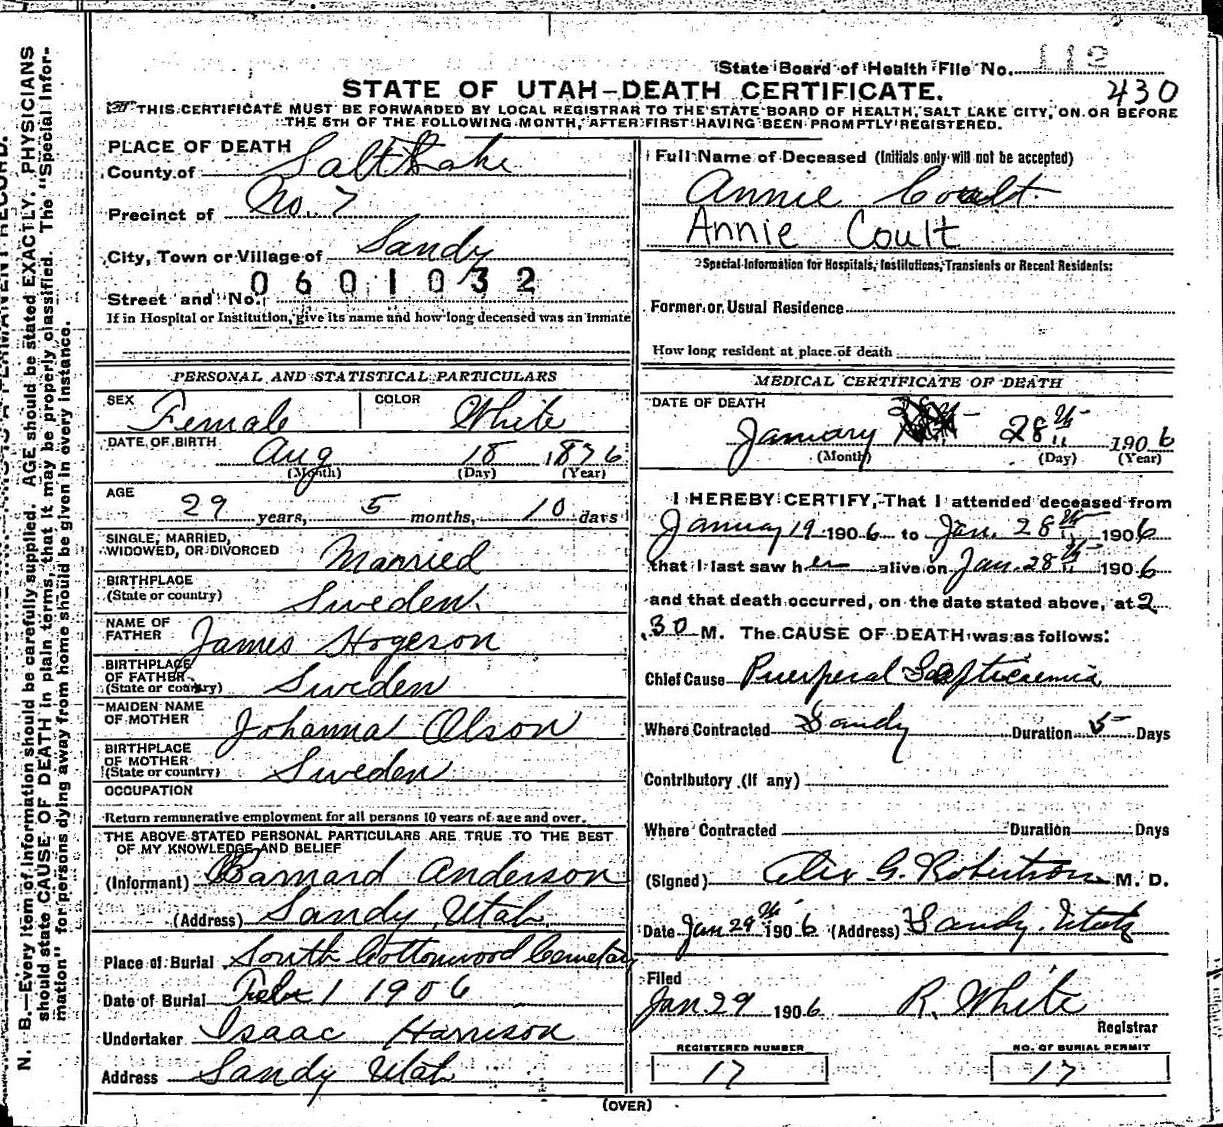 State Board of Health File No. 112
STATE OF UTAH—DEATH CERTIFICATE. 430
THIS CERTIFICATE MUST BE FORWARDED BY LOCAL REGISTRAR TO THE STATE BOARD OF HEALTH, SALT LAKE CITY, ON OR BEFORE
THE 5TH OF THE FOLLOWING MONTH, AFTER FIRST HAVING BEEN PROMPTLY REGISTERED.
PLACE OF DEATH
County of Salt Lake
Precinct of No. 7
City, Town or Village of Sandy
0601032
Street and No.
If in Hospital or Institution, give its name and how long deceased was an Inmate
PERSONAL AND STATISTICAL PARTICULARS
SEX Female COLOR White
DATE OF BIRTH Aug 18 1876
(Month) (Day) (Year)
AGE
29 years, 5 months, 10 days
SINGLE, MARRIED,
WIDOWED, OR DIVORCED Married
BIRTHPLACE
(State or country) Sweden.
NAME OF
FATHER James Hogeson
BIRTHPLACE
OF FATHER
(State or country) Sweden
MAIDEN NAME
OF MOTHER Johanna Olson
BIRTHPLACE
OF MOTHER
(State or country) Sweden
OCCUPATION
Return remunerative employment for all persons 10 years of age and over.
THE ABOVE STATED PERSONAL PARTICULARS ARE TRUE TO THE BEST
OF MY KNOWLEDGE AND BELIEF
(Informant) Barnard Anderson
(Address) Sandy, Utah
Place of Burial South Cottonwood Cemetary
Date of Burial Febr 1 1906
Undertaker Isaac Harrison
Address Sandy Utah
Full Name of Deceased (Initials only will not be accepted)
Annie Coult.
Annie Coult
Special Information for Hospitals, Institutions, Transients or Recent Residents:
Former or Usual Residence
How long resident at place of death
MEDICAL CERTIFICATE OF DEATH
DATE OF DEATH
January 28th 1906
(Month) (Day) (Year)
I HEREBY CERTIFY, That I attended deceased from
January 19 1906 to Jan. 28th 1906
that I last saw her alive on Jan. 28th 1906
and that death occurred, on the date stated above, at 2
.30 M. The CAUSE OF DEATH was as follows:
Chief Cause Puerperal Septicaemia
Where Contracted Sandy Duration 5 Days
Contributory (if any)
Where Contracted Duration Days
(Signed) Alex. G. Robertson M. D.
Date Jan 29th 1906 (Address) Sandy. Utah
Filed
Jan 29 1906 R. White
Registrar
REGISTERED NUMBER NO. OF BURIAL PERMIT
17 17
(OVER)
N. B.—Every item of information should be carefully supplied. AGE should be stated EXACTLY. PHYSICIANS
should state CAUSE OF DEATH in plain terms, that it may be properly classified. The "Special Infor-
mation" for persons dying away from home should be given in every instance.